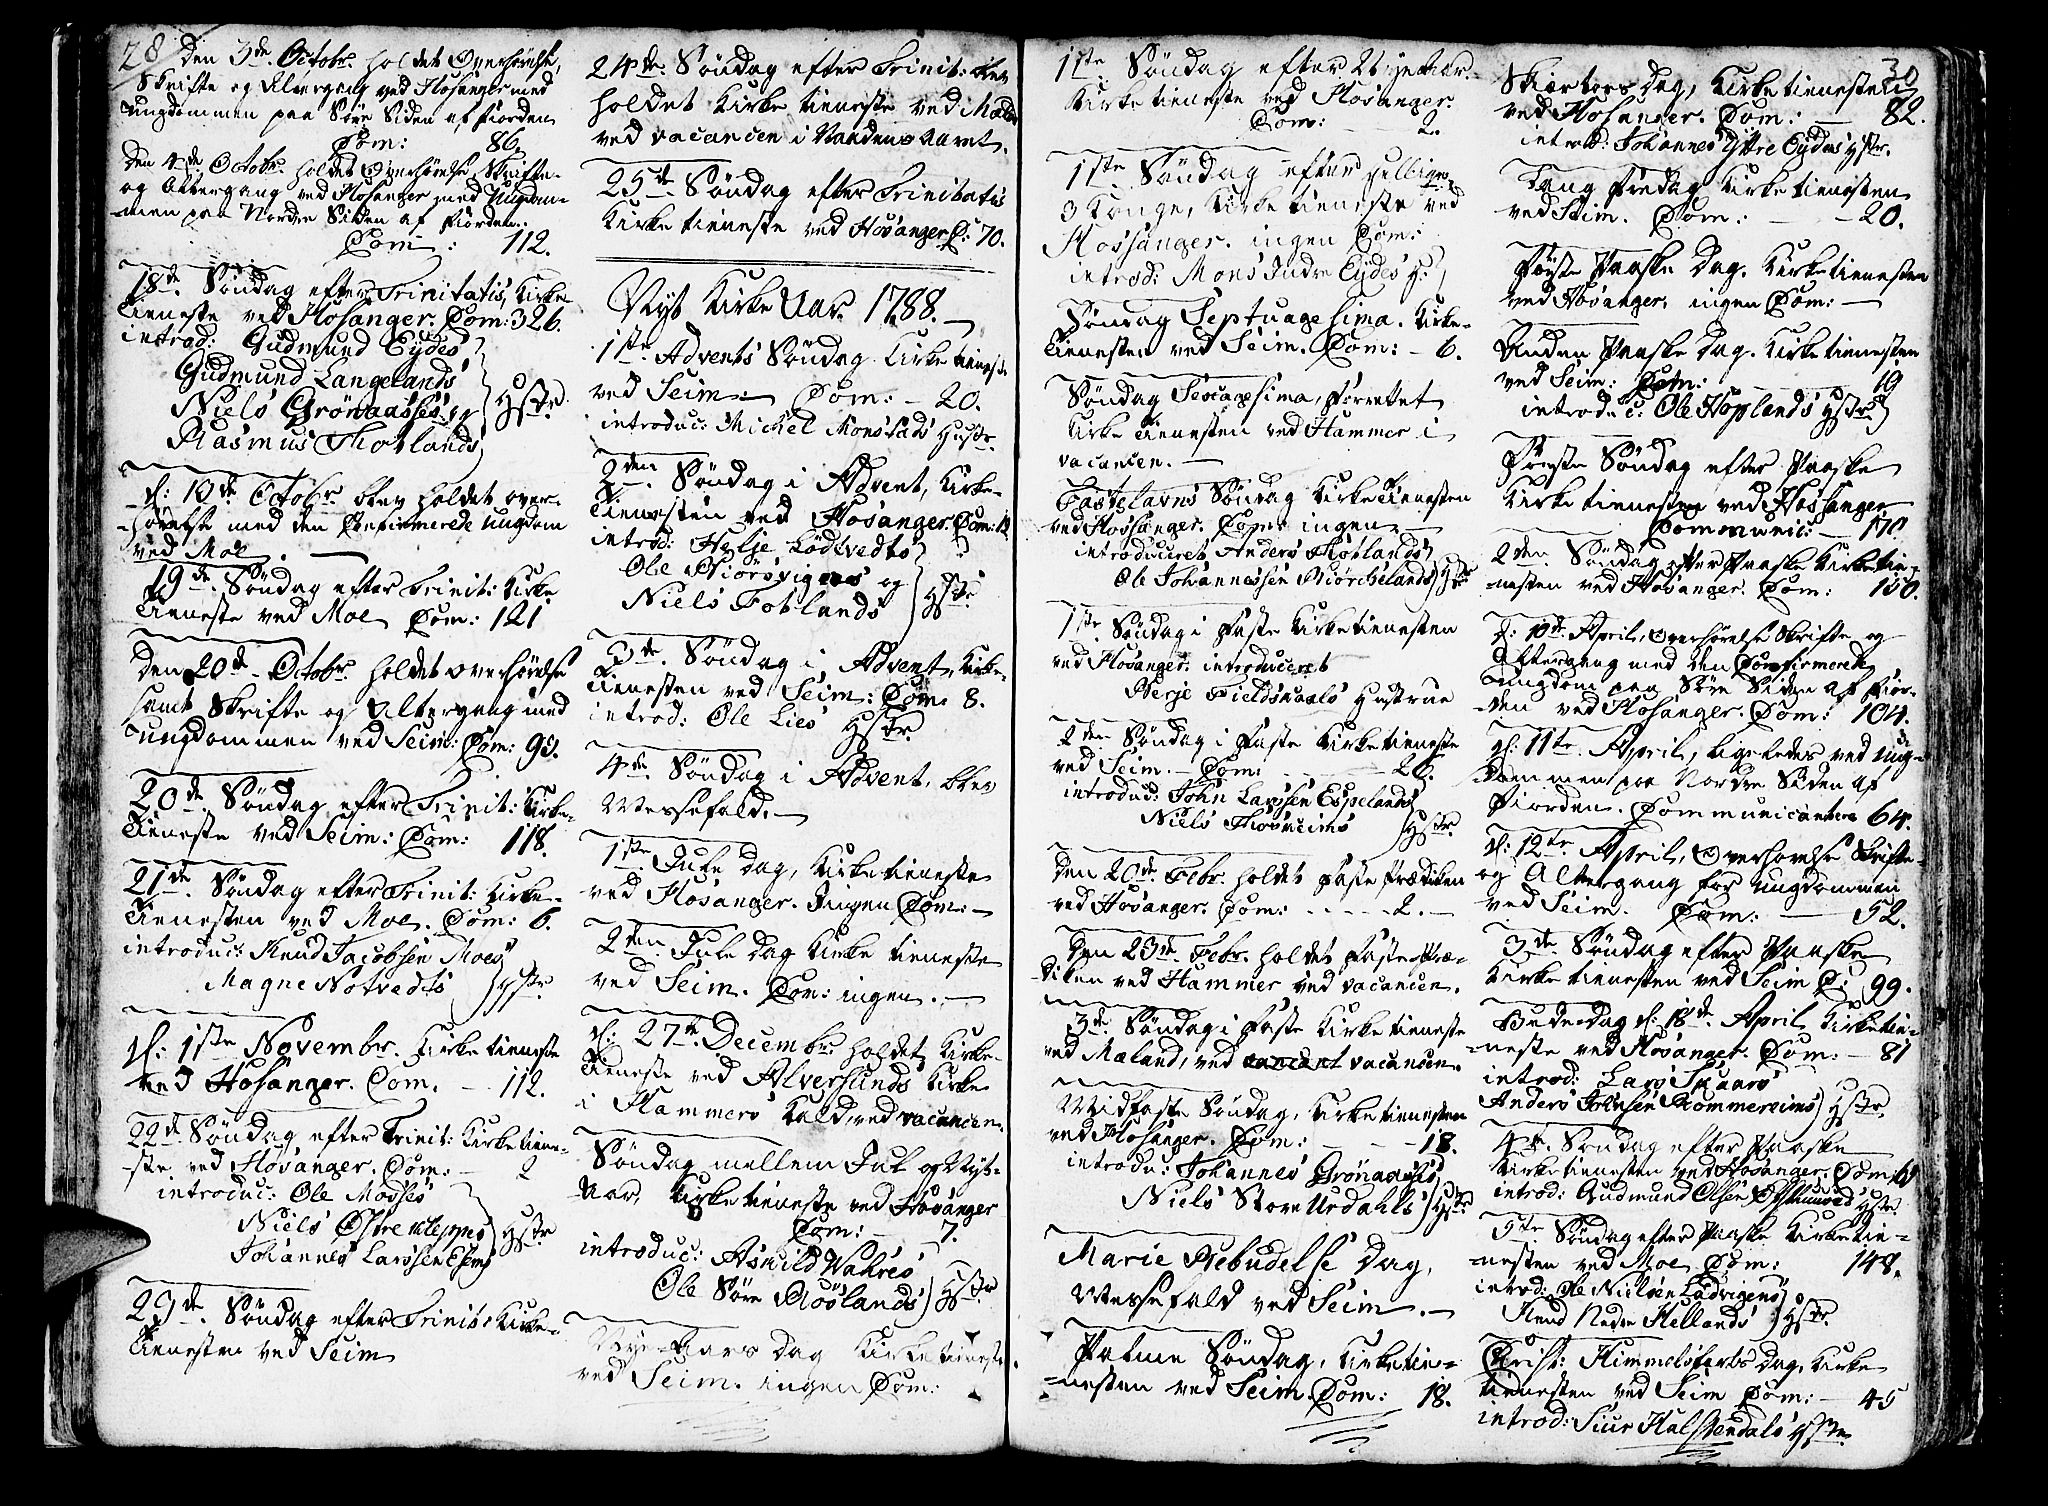 28
Den 3de Octobr. holdet Overhørelse,
Skrifte og Altergang ved Hosanger med
ungdommen paa Søre Siden af Fiorden
Com: 86.
Den 4de Octobr. holdet Overhørelse, Skrifte-
og Altergang ved Hosanger med Ungdom-
men paa Nordre Siden af Fiorden.
Com: 112.
18de Søndag efter Trinitatis, Kirke-
Tieneste ved Hosanger. Com: 326.
introd: Gudmund Eydes
Gudmund Langelands
Niels Grønaases og
Rasmus Thotlands
Hstr.
d: 10de Octobr. blev holdet over-
hørelse med den Confirmerede ungdom
ved Moe.
19de Søndag efter Trinit: Kirke
Tieneste ved Moe Com: 121
Den 20de Octobr. holdet overhørelse
samt Skrifte og Altergang med
ungdommen ved Seim: Com: 90.
20de Søndag efter Trinit: Kirke-
Tieneste ved Seim: Com: 118.
21de Søndag efter Trinit: Kirke-
Tienesten ved Moe. Com: 6.
introduc: Knud Jacobsen Moes
Magne Notvedts
Hstr
d: 1ste Novembr. Kirke tieneste
ved Hosanger. Com. 112.
22de Søndag efter Trinit: Kirke tiene-
ste ved Hosanger. Com: 2
introduc: Ole Modses
Niels Østre Kleppes
Johannes Larssen
Hstr
23de Søndag efter Trinit: Kirke-
Tienesten ved Seim
24de Søndag efter Trinit: blev
holdet Kirke tieneste ved
ved vacancen i Naadens aaret.
25de Søndag efter Trinitatis
Kirke tieneste ved Hosanger C: 70.
Nyt Kirke Aar 1788.
1ste Advents Søndag Kirke tieneste
ved Seim: Com: - 20.
introduc: Michel Monstads Hustr.
2den Søndag i Advent, Kirke-
Tienesten ved Hosanger. Com:
introd: Helje Lødtvedts
Ole og
Niels Fotlands
Hstr
3de Søndag i Advent, Kirke-
Tienesten ved Seim: Com: 8.
introd: Ole Lies Hstr.
4de Søndag i Advent, blev
Messefald.
1ste Jule dag, Kirke tieneste
ved Hosanger. Ingen Com:
2den Jule dag Kirke tieneste
ved Seim. Com: ingen.
d: 27de Decembr. holdet Kirke-
Tieneste ved Alversunds Kirke
i Hammers Kald, ved vacancen.
Søndag mellem Jul og Nyt-
Aar, Kirke tieneste ved Hosanger
Com: 7.
introduc: Asvild Vahres
Ole Søre Røslands
Hstr
Nye-Aars dag Kirke tieneste
ved Seim. ingen Com:
1ste Søndag efter Nytaar.
Kirke tieneste ved Hosanger.
Com: 2.
1ste Søndag efter Hellige
3 Konge, Kirke tieneste ved
Hossanger. ingen Com:
introd: Mons Indre Eydes H:
Søndag Septuagesima. Kirke-
Tienesten ved Seim. Com: - 6.
Søndag Sexagesima, forrettet
Kirke Tienesten ved Hammer i
vacancen.
Fastelavns Søndag Kirke Tienesten
ved Hossanger. Com: ingen
introduceret Anders Thotlands
Ole Johannessen Biørchelands
Hstr
1ste Søndag i Faste Kirke tienesten
ved Hosanger. introduceret
Berje Hustrue
2den Søndag i Faste Kirke tieneste
ved Seim. - Com: 26.
introduc: John Larssen Espelands
Niels
Hstr.
Den 20de Febr. holdet Faste Prædiken
ved Hosanger. Com: 2.
Den 23de Febr. holdet Faste Præ-
diken ved Hammer ved vacancen.
3de Søndag i Faste Kirke tieneste
ved Mæland, ved vacancen.
Midfaste Søndag, Kirke tienesten
ved Hosanger. Com: 18.
introdu: Johannes Grønaases
Niels Store Urdahls
Hstr.
Marie Bebudelse Dag,
Messefald ved Seim.
Palme Søndag, Kirke tie-
nesten ved Seim. Com: 18.
30
Skiertors Dag, Kirke tienesten
ved Hosanger. Com: 82.
introd: Johannes Yttre Eydes Hstr.
Lang Fredag Kirke tienesten
ved Seim. Com: 20.
Første Paaske Dag. Kirke tienesten
ved Hosanger. ingen Com:
Anden Paaske Dag. Kirke tienesten
ved Seim: Com: 19
introduc: Ole Hoplands Hstr
Første Søndag efter Paaske
Kirke tienesten ved Hossanger
Communic: 170
2den Søndag efter Paaske Kirke tie-
nesten ved Hosanger. Com: 150.
d: 10de April, overhørelse Skrifte og
Altergang med den Confirmerede
ungdom paa Søre Siden af Fior-
den ved Hosanger. Com: 104.
d: 11te April, ligeledes ved ung-
dommen paa Nordre Siden af
Fiorden. Communicantere 64.
d: 12te April, Overhørelse Skrifte-
og Altergang for ungdommen
ved Seim. Com: 52.
3de Søndag efter Paaske
Kirke tienesten ved Seim C: 99.
Bededag d: 18de April Kirke tie-
neste ved Hosanger. Com: - 81
introd: Lars Skaars
Anders Rommereims
Hstr.
4de Søndag efter Paaske
Kirke tienesten ved Hosanger. Com:
introd: Gudmund Olsen Hstr.
5te Søndag efter Paaske Kirke tie-
nesten ved Moe Com: 148.
introd: Ole Nielsen Ladvigens
Knud Nedre Hellands
Hstr.
Christ: Himmelsferts Dag, Kirke
tienesten ved Seim Com: 45
introd: Siur Halstendals Hstr.